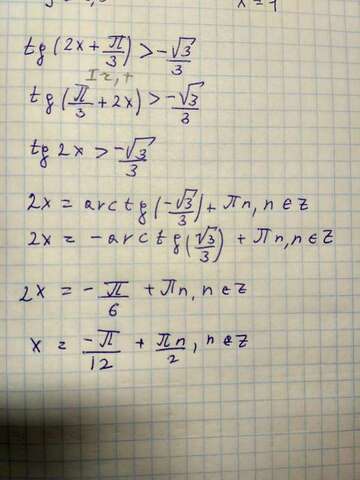 x = 1
tg(2x + π/3) > -√3/3
I г, +
tg(π/3 + 2x) > -√3/3
tg 2x > -√3/3
2x = arctg(-√3/3) + πn, n ∈ Z
2x = -arctg(√3/3) + πn, n ∈ Z
2x = -π/6 + πn, n ∈ Z
x = -π/12 + πn/2, n ∈ Z